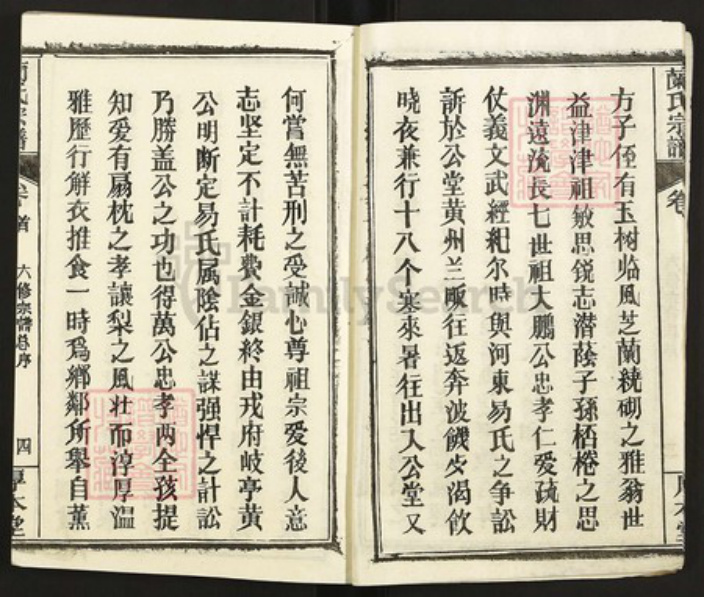 蘭氏宗譜
卷
厚本堂
方子侄有玉树临風芝蘭繞砌之雅翁世
益津津祖敏思锐志潜蔭子孫栝棬之思
渊遠流長七世祖大鹏公忠孝仁爱疏財
仗義文武經纪尔時與河東易氏之争訟
訴於公堂黄州兰畈往返奔波饑歺渴飲
晓夜兼行十八个寒來暑往出入公堂又
何嘗無苦刑之受誠心尊祖宗爱後人意
志坚定不計耗費金銀終由戎府岐亭黄
公明断定易氏属陰佔之謀强悍之計訟
乃勝盖公之功也得萬公忠孝两全孩提
知爱有扇枕之孝讓梨之风壮而淳厚温
雅歷行解衣推食一時爲鄉鄰所舉自薰
蘭氏宗譜
卷首
六修宗譜总序
四
厚本堂
FamilySearch